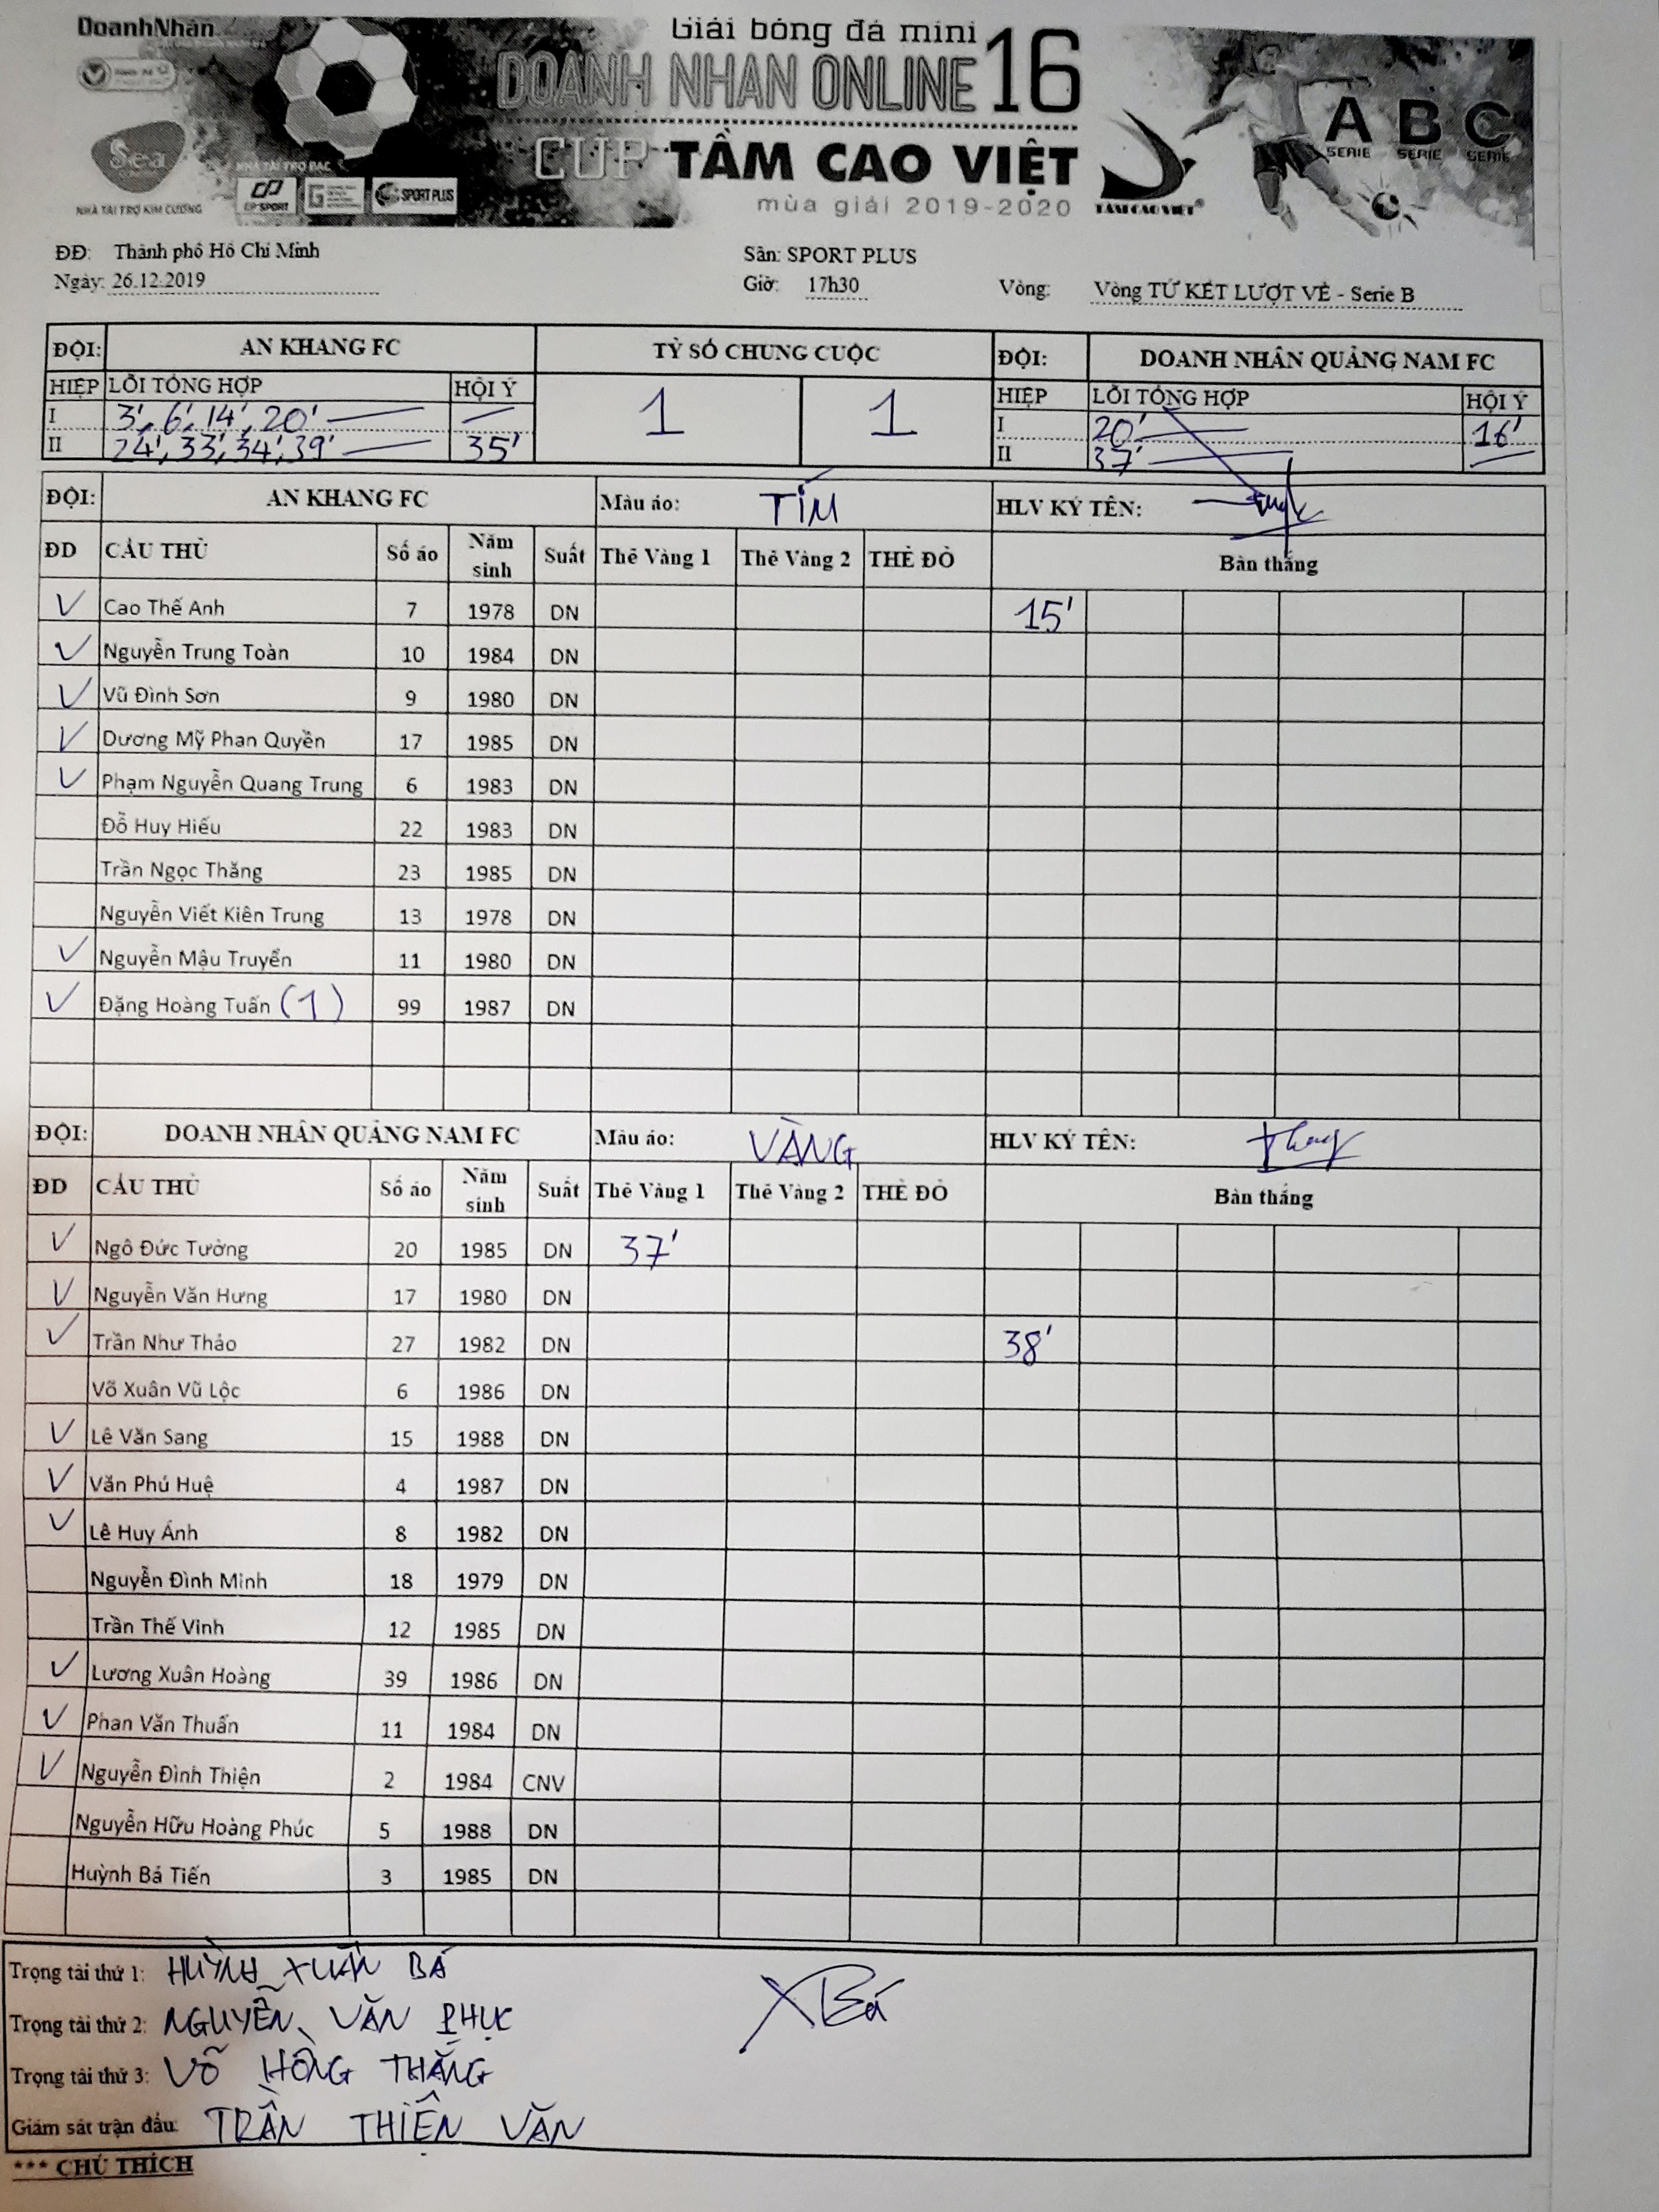 DoanhNhân
Giải bóng đá mini
DOANH NHAN ONLINE 16
CUP TẦM CAO VIỆT
mùa giải 2019-2020
Sea
NHÀ TÀI TRỢ KIM CƯƠNG
NHÀ TÀI TRỢ BẠC
SPORT PLUS
TẦM CAO VIỆT
A B C
SERIE SERIE SERIE
ĐĐ: Thành phố Hồ Chí Minh Sân: SPORT PLUS
Ngày: 26.12.2019 Giờ: 17h30 Vòng: Vòng TỨ KẾT LƯỢT VỀ - Serie B
ĐỘI: AN KHANG FC TỶ SỐ CHUNG CUỘC ĐỘI: DOANH NHÂN QUẢNG NAM FC
HIỆP LỖI TỔNG HỢP HỘI Ý 1 1 HIỆP LỖI TỔNG HỢP HỘI Ý
I 3', 6', 14', 20' — I 20' 16'
II 24', 33', 34', 39' 35' II 37'
ĐỘI: AN KHANG FC Màu áo: TÍM HLV KÝ TÊN:
ĐD CẦU THỦ Số áo Năm sinh Suất Thẻ Vàng 1 Thẻ Vàng 2 THẺ ĐỎ Bàn thắng
V Cao Thế Anh 7 1978 DN 15'
V Nguyễn Trung Toàn 10 1984 DN
V Vũ Đình Sơn 9 1980 DN
V Dương Mỹ Phan Quyền 17 1985 DN
V Phạm Nguyễn Quang Trung 6 1983 DN
Đỗ Huy Hiếu 22 1983 DN
Trần Ngọc Thăng 23 1985 DN
Nguyễn Viết Kiên Trung 13 1978 DN
V Nguyễn Mậu Truyển 11 1980 DN
V Đặng Hoàng Tuấn (1) 99 1987 DN
ĐỘI: DOANH NHÂN QUẢNG NAM FC Màu áo: VÀNG HLV KÝ TÊN:
ĐD CẦU THỦ Số áo Năm sinh Suất Thẻ Vàng 1 Thẻ Vàng 2 THẺ ĐỎ Bàn thắng
V Ngô Đức Tường 20 1985 DN 37'
V Nguyễn Văn Hưng 17 1980 DN
V Trần Như Thảo 27 1982 DN 38'
Võ Xuân Vũ Lộc 6 1986 DN
V Lê Văn Sang 15 1988 DN
V Văn Phú Huệ 4 1987 DN
V Lê Huy Ánh 8 1982 DN
Nguyễn Đình Minh 18 1979 DN
Trần Thế Vinh 12 1985 DN
V Lương Xuân Hoàng 39 1986 DN
V Phan Văn Thuấn 11 1984 DN
V Nguyễn Đình Thiện 2 1984 CNV
Nguyễn Hữu Hoàng Phúc 5 1988 DN
Huỳnh Bá Tiến 3 1985 DN
Trọng tài thứ 1: HUỲNH XUÂN BÁ
XBá
Trọng tài thứ 2: NGUYỄN VĂN PHỤC
Trọng tài thứ 3: VÕ HỒNG THẮNG
Giám sát trận đấu: TRẦN THIỆN VĂN
*** CHÚ THÍCH